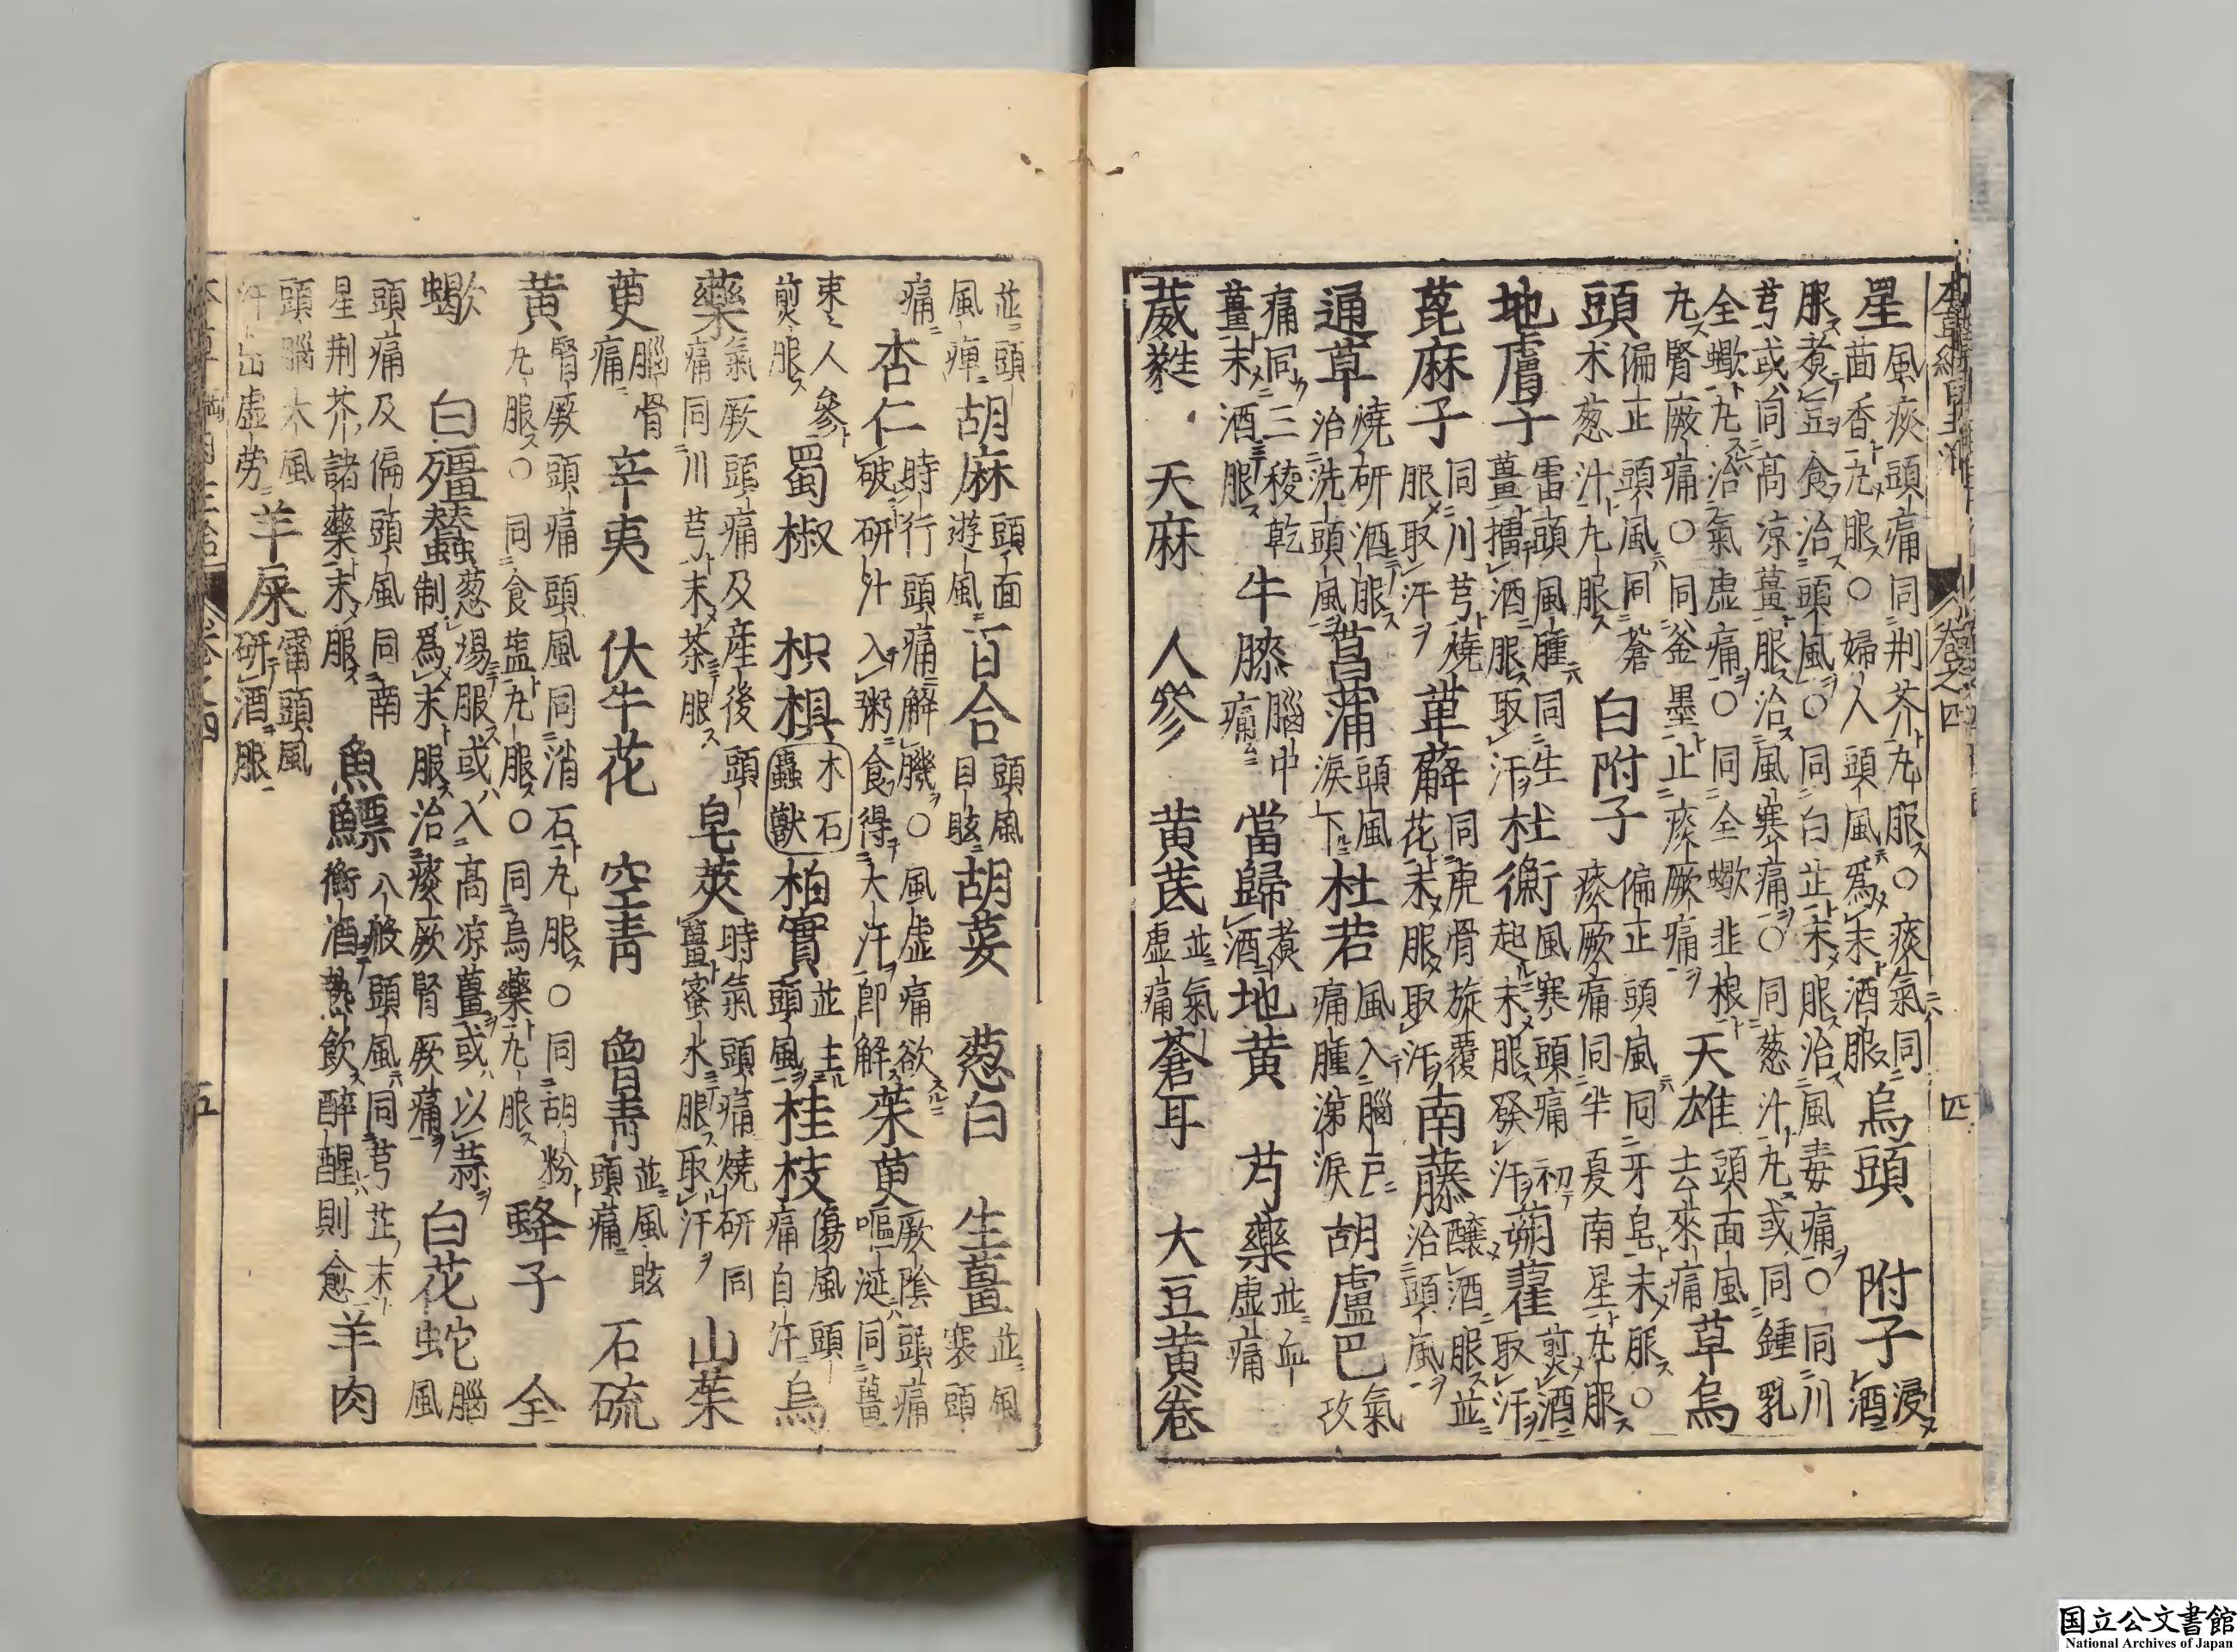 本草綱目主治 卷之四 四
星 風痰頭痛同荊芥丸服○痰氣同茴香丸服○婦人頭風爲末酒服 烏頭 附子 浸酒
服煑豆食治頭風○同白芷末服治風毒痛○同川芎或同高涼薑服治風寒痛○同葱汁丸或同鍾乳
全蠍丸治氣虛痛○同全蠍韭根丸腎厥痛○同釜墨止痰厥痛 天雄 頭面風去來痛 草烏
頭 偏正頭風同蒼术葱汁丸服 白附子 偏正頭風同牙皂末服○痰厥痛同半夏南星丸服
地膚子 雷頭風腫同生薑擂酒服取汗 杜衡 風寒頭痛初起末服發汗 蒴藋 煎酒取汗
蓖麻子 同川芎燒服取汗 萆薢 同虎骨旋覆花末服取汗 南藤 釀酒服並治頭風
通草 燒研酒服治洗頭風 菖蒲 頭風淚下 杜若 風入腦戶痛腫涕淚 胡盧巴 氣攻
痛同三稜乾薑末酒服 牛膝 腦中痛 當歸 煑酒 地黃 芍藥 並血虛痛
葳蕤 天麻 人參 黃芪 並氣虛痛 蒼耳 大豆黃卷
並頭風痺 胡麻 頭面遊風 百合 頭風目眩 胡荽 葱白 生薑 並風寒頭
痛 杏仁 時行頭痛解肌○風虛痛欲破研汁入粥食得大汗即解 茱萸 厥陰頭痛嘔涎同薑
棗人參煎服 蜀椒 枳椇 木石蟲獸 柏實 並主頭風 桂枝 傷風頭痛自汗 烏
藥 氣厥頭痛及産後頭痛同川芎末茶服 皂莢 時氣頭痛燒研同薑蜜水服取汗 山茱
萸 腦骨痛 辛夷 伏牛花 空青 曾青 並風眩頭痛 石硫
黃 腎厥頭痛頭風同消石丸服○同胡粉丸服○同食塩丸服○同烏藥丸服 蜂子 全
蠍 白殭蠶 葱湯服或入高涼薑或以蒜制爲末服治痰厥腎厥痛 白花蛇 腦風
頭痛及偏頭風同南星荊芥諸藥末服 魚鰾 八般頭風同芎芷末衝酒熱飲醉醒則愈 羊肉
頭腦大風汗出虛勞 羊屎 雷頭風研酒服
五
国立公文書館
National Archives of Japan